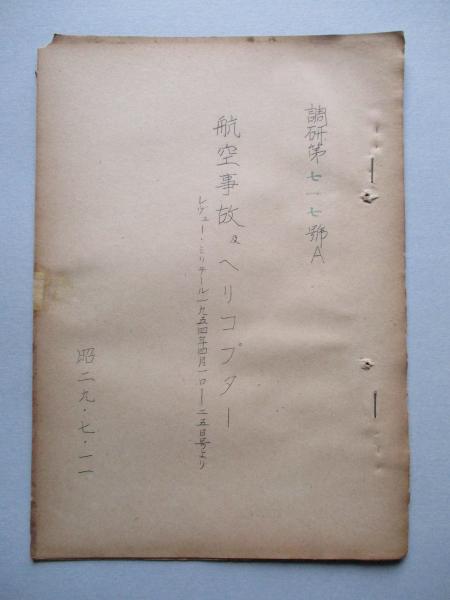 調研第七一七號A
航空事故及ヘリコプター
レヴュー・ミリテール一九五四年四月一日ー二五日号より
昭二九・七・一一